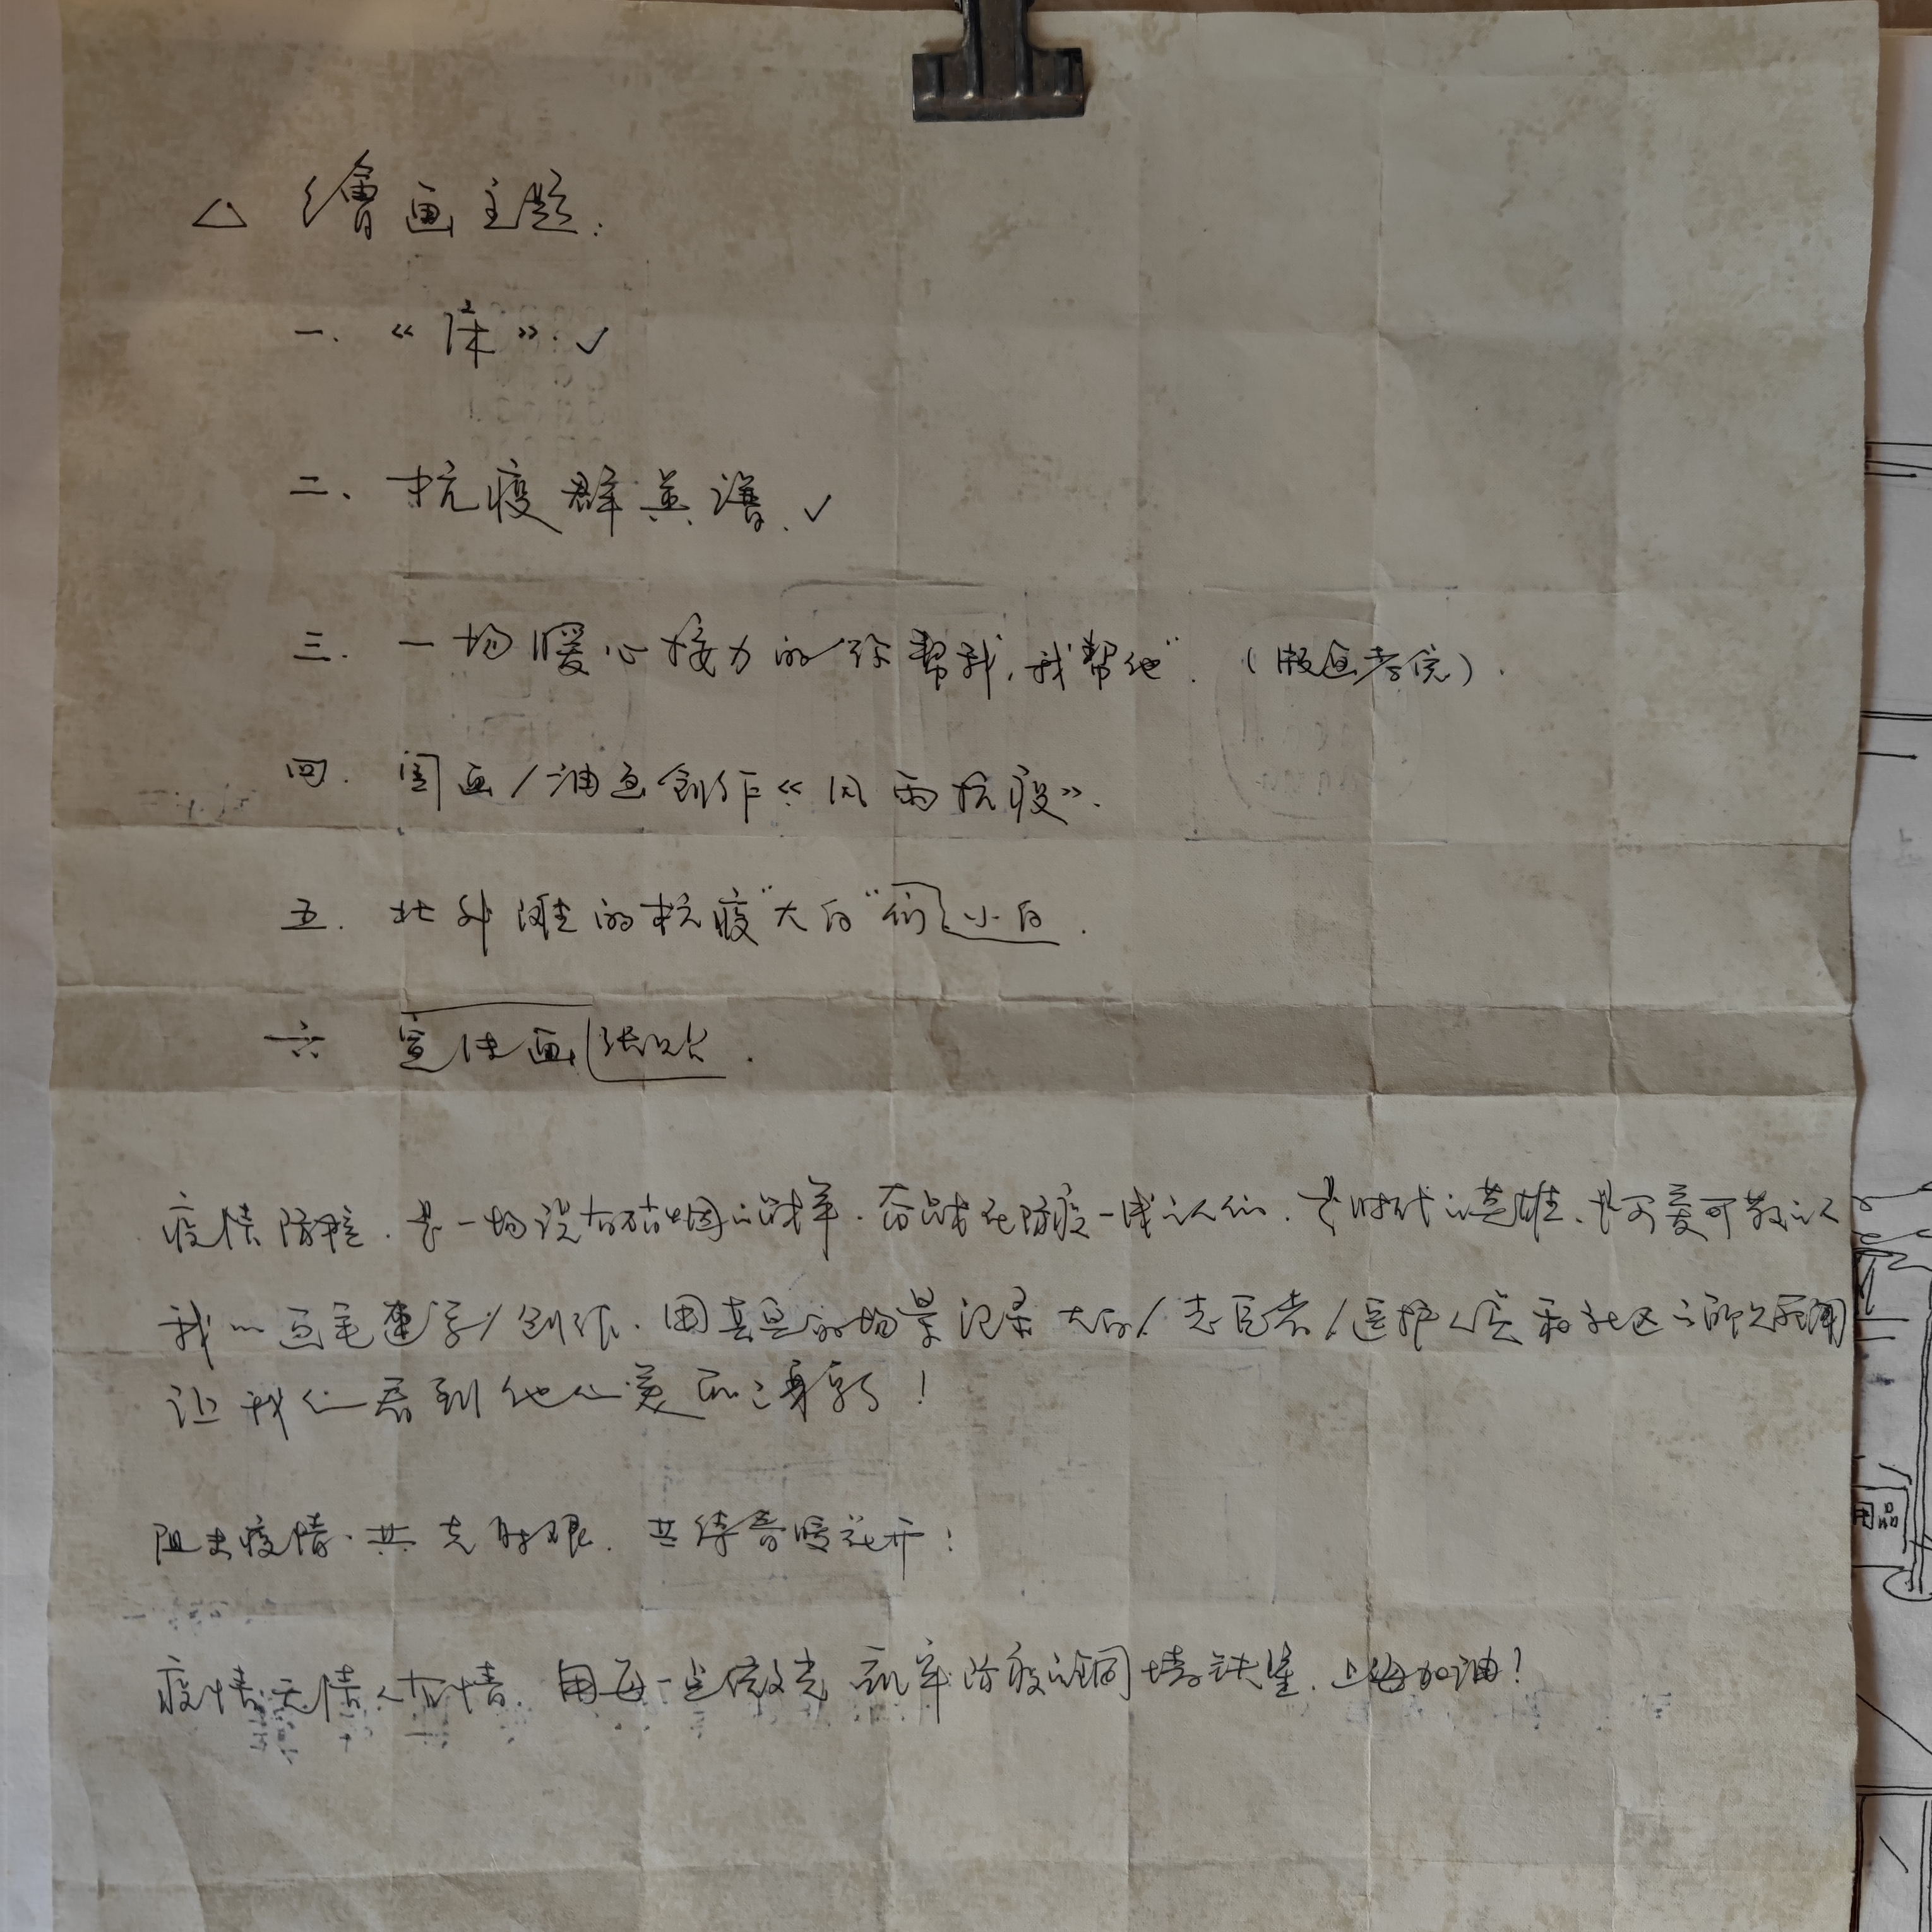 △ 繪画主题:
一、《床》.✓
二、抗疫群英谱.✓
三. 一场暖心接力的"你帮我,我帮他". (版画
四. 国画/油画創作《风雨抗疫》.
五. 北外滩的抗疫"大白"们小白.
六 宣传画张贴.
疫情防控.是一场没有硝烟的战争.奋战在防疫一线的人们.是时代的英雄、是可爱可敬的人
我的画笔速写/创作.用真实的场景记录大白/志愿者/医护人员和社区
让我们看到他们美丽的身影!
阻击疫情.共克时艰.共待春暖花开!
疫情无情人有情.用每一点微光 筑牢防疫的铜墙铁壁.上海加油!
用品